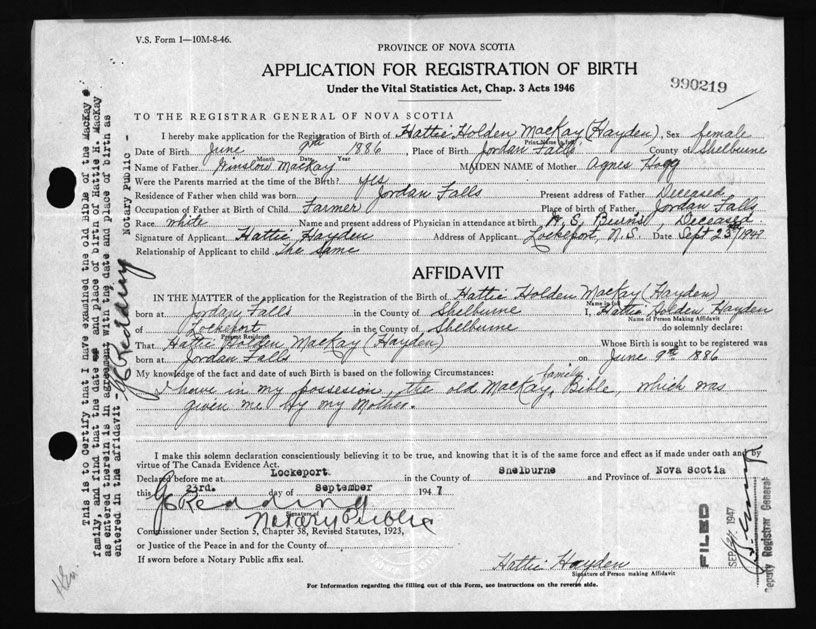 V.S. Form 1—10M-8-46.
PROVINCE OF NOVA SCOTIA
APPLICATION FOR REGISTRATION OF BIRTH
Under the Vital Statistics Act, Chap. 3 Acts 1946
990219
TO THE REGISTRAR GENERAL OF NOVA SCOTIA
I hereby make application for the Registration of Birth of Hattie Holden MacKay (Hayden), Sex female
Print Name in full
Date of Birth June 9th 1886, Place of Birth Jordan Falls County of Shelburne
Month Date Year
Name of Father Winslow MacKay MAIDEN NAME of Mother Agnes Hogg
Were the Parents married at the time of the Birth? yes
Residence of Father when child was born Jordan Falls Present address of Father Deceased
Occupation of Father at Birth of Child Farmer Place of birth of Father Jordan Falls
Race white Name and present address of Physician in attendance at birth S. Burns, Deceased
Signature of Applicant Hattie Hayden Address of Applicant Lockeport, N.S. Date Sept 23rd 1947
Relationship of Applicant to child The Same
AFFIDAVIT
IN THE MATTER of the application for the Registration of the Birth of Hattie Holden MacKay (Hayden)
Name in full
born at Jordan Falls in the County of Shelburne I, Hattie Holden Hayden
Name of Person Making Affidavit
of Lockeport in the County of Shelburne do solemnly declare:
Present Residence
That Hattie Holden MacKay (Hayden) Whose Birth is sought to be registered was
born at Jordan Falls on June 9th 1886
My knowledge of the fact and date of such Birth is based on the following Circumstances:
I have in my possesion, the old MacKay family Bible, which was
given me by my Mother.
I make this solemn declaration conscientiously believing it to be true, and knowing that it is of the same force and effect as if made under oath and by
virtue of The Canada Evidence Act.
Declared before me at Lockeport in the County of Shelburne and Province of Nova Scotia
this 23rd. day of September 1947
Redding
Signature of
Notary Public
Commissioner under Section 5, Chapter 38, Revised Statutes, 1923,
or Justice of the Peace in and for the County of
If sworn before a Notary Public affix seal.
Hattie Hayden
Signature of Person making Affidavit
For Information regarding the filling out of this Form, see instructions on the reverse side.
This is to Certify that I have examined the old Bible of the MacKay
family and find that the date and place of birth of Hattie H. MacKay
as entered therein is in agreement with the date and place of birth as
entered in the affidavit -
Redding
Notary Public -
FILED
SEP 1947
Deputy Registrar General